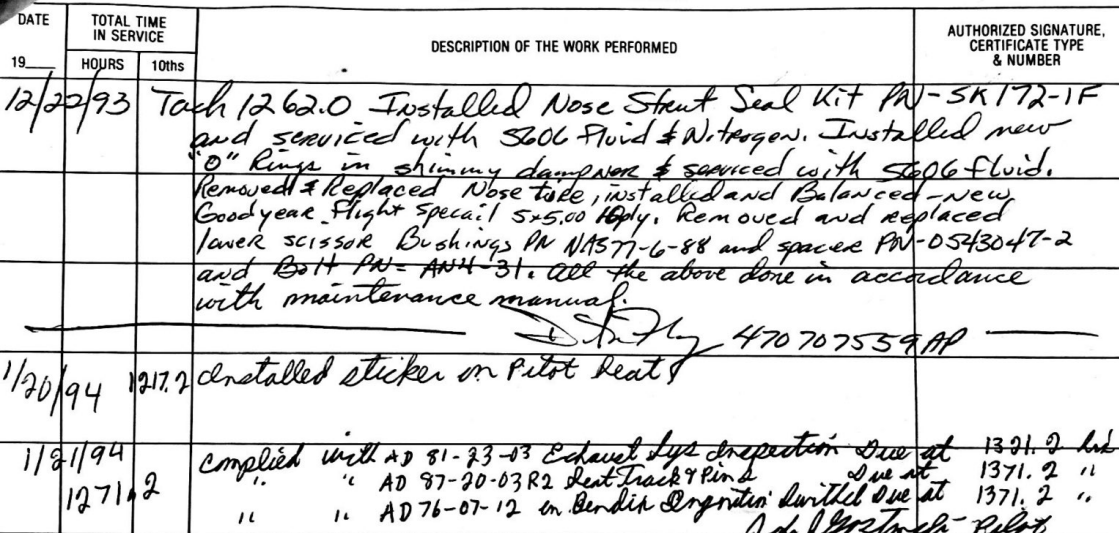 DATE
TOTAL TIME IN SERVICE
DESCRIPTION OF THE WORK PERFORMED
AUTHORIZED SIGNATURE, CERTIFICATE TYPE & NUMBER
19
HOURS
10ths
12/22/93 Tach 1262.0 Installed Nose Strut Seal Kit PN-SK172-1F
and serviced with 5606 Fluid & Nitrogen. Installed new
"O" Rings in shimmy dampner & serviced with 5606 fluid.
Removed & Replaced Nose tire, installed and Balanced-new
Goodyear Flight Specail 5x5.00 ply. Removed and replaced
lower scissor Bushings PN NAS77-6-88 and spacer PN-0543047-2
and Bolt PN= AN4-31. All the above done in accordance
with maintenance manual.
470707559 AP
1/20/94 1217.2 Installed sticker on Pitot heat
1/21/94 Complied with AD 81-23-03 Exhaust Sys Inspection Due at 1321.2 hrs
1271.2 " " AD 87-20-03R2 Seat Track & Pins Due at 1371.2 "
" " AD 76-07-12 on Bendix Ignition Switches Due at 1371.2 "
Pilot